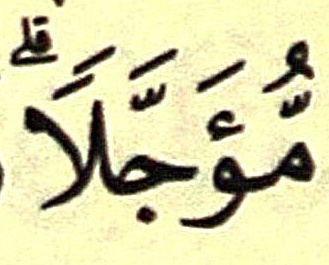 مُّؤَجَّلًاۗ